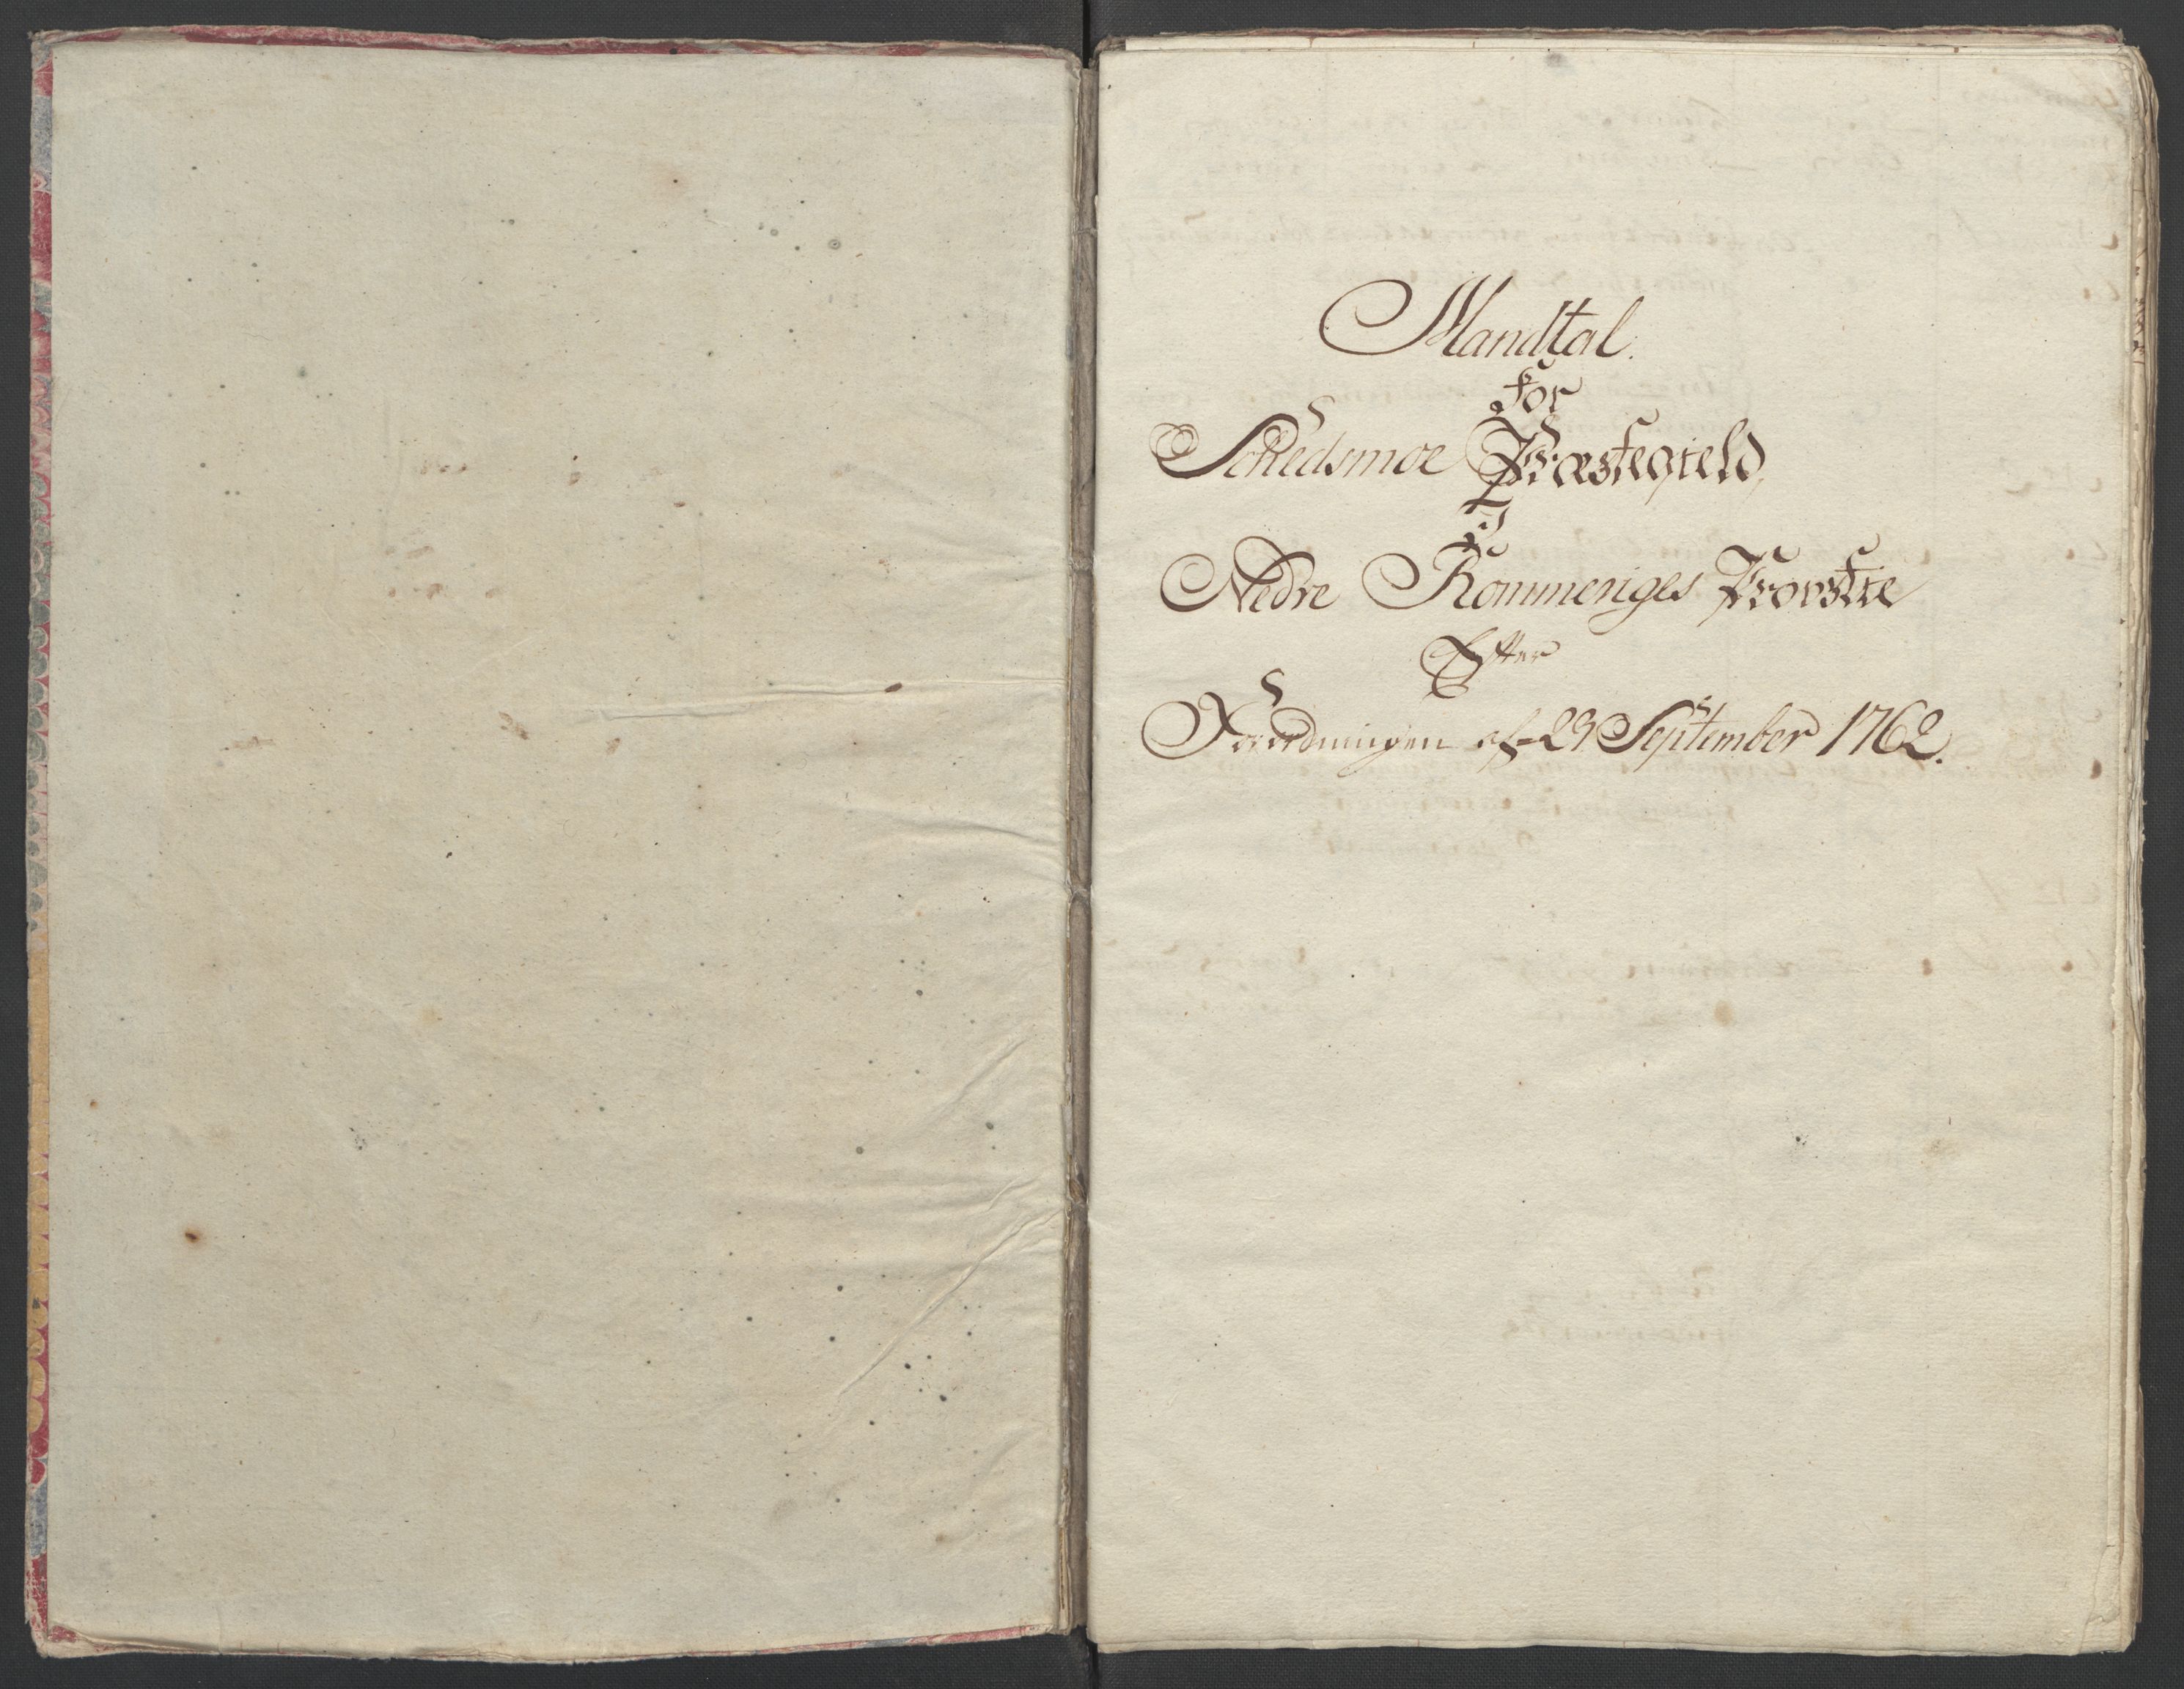 Mandtal.
for
Schedsmoe Præstegield,
I
Nedre Rommeriges Provstie
Efter
Forordningen af 23 September 1762.